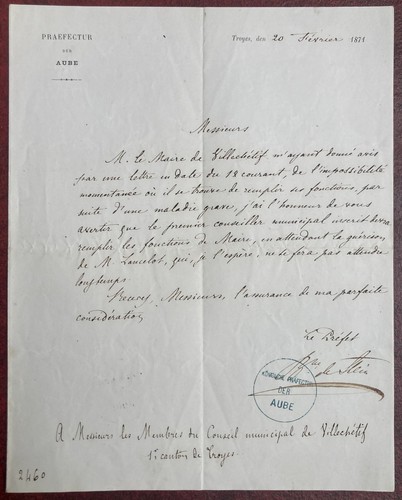 PRAEFECTUR
DER
AUBE
Troyes, den 20 Février 1871
Messieurs
M. le Maire de Villechétif m'ayant donné avis
par une lettre en date du 18 courant, de l'impossibilité
momentanée où il se trouve de remplir ses fonctions, par
suite d'une maladie grave, j'ai l'honneur de vous
avertir que le premier conseiller municipal inscrit devra
remplir les fonctions de Maire, en attendant la guérison
de M. Lancelot, qui, je l'espère, ne se fera pas attendre
longtemps.
Recevez, Messieurs, l'assurance de ma parfaite
considération
Le Préfet
de
PRAEFECTUR
DER
AUBE
A Messieurs les Membres du Conseil municipal de Villechétif
1er canton de Troyes
2460